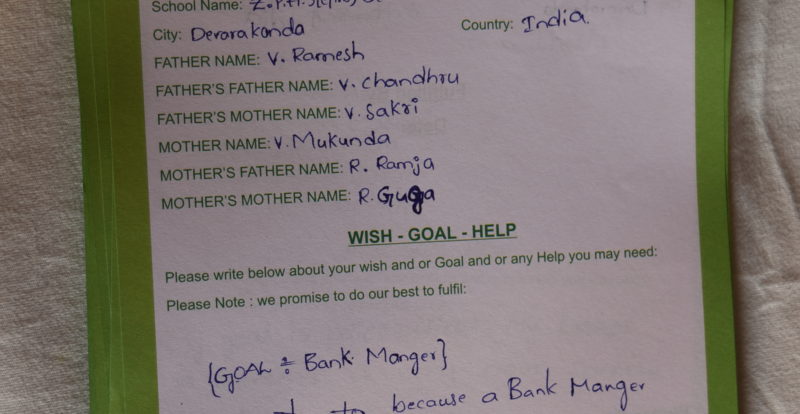 School Name: Z.P.H.
City: Devarakonda Country: India.
FATHER NAME: V. Ramesh
FATHER'S FATHER NAME: V. Chandhru
FATHER'S MOTHER NAME: V. Sakri
MOTHER NAME: V. Mukunda
MOTHER'S FATHER NAME: R. Ramja
MOTHER'S MOTHER NAME: R. Guga
WISH - GOAL - HELP
Please write below about your wish and or Goal and or any Help you may need:
Please Note : we promise to do our best to fulfil:
{GOAL : Bank Manger}
to because a Bank Manger